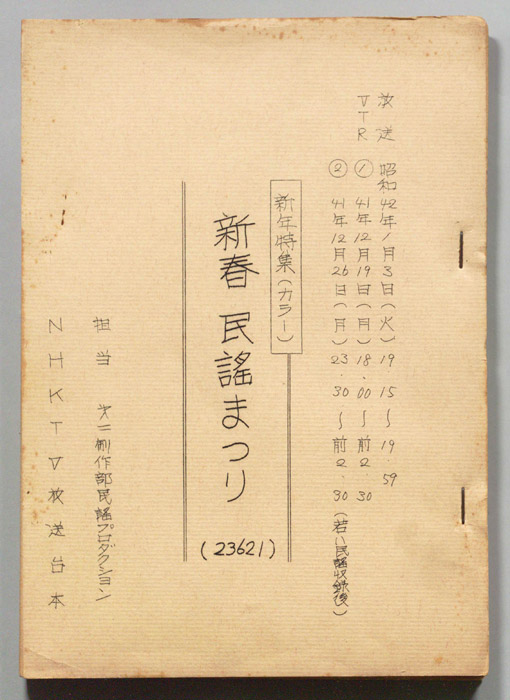 放送 昭和42年1月3日(火) 19.15〜19.59
VTR ① 41年12月19日(月) 18.00〜前2.30
② 41年12月26日(月) 23.30〜前2.30(若い民謡収録後)
新年特集(カラー)
新春 民謡まつり
(23621)
担当 才二制作部民謡プロダクション
NHKTV放送台本